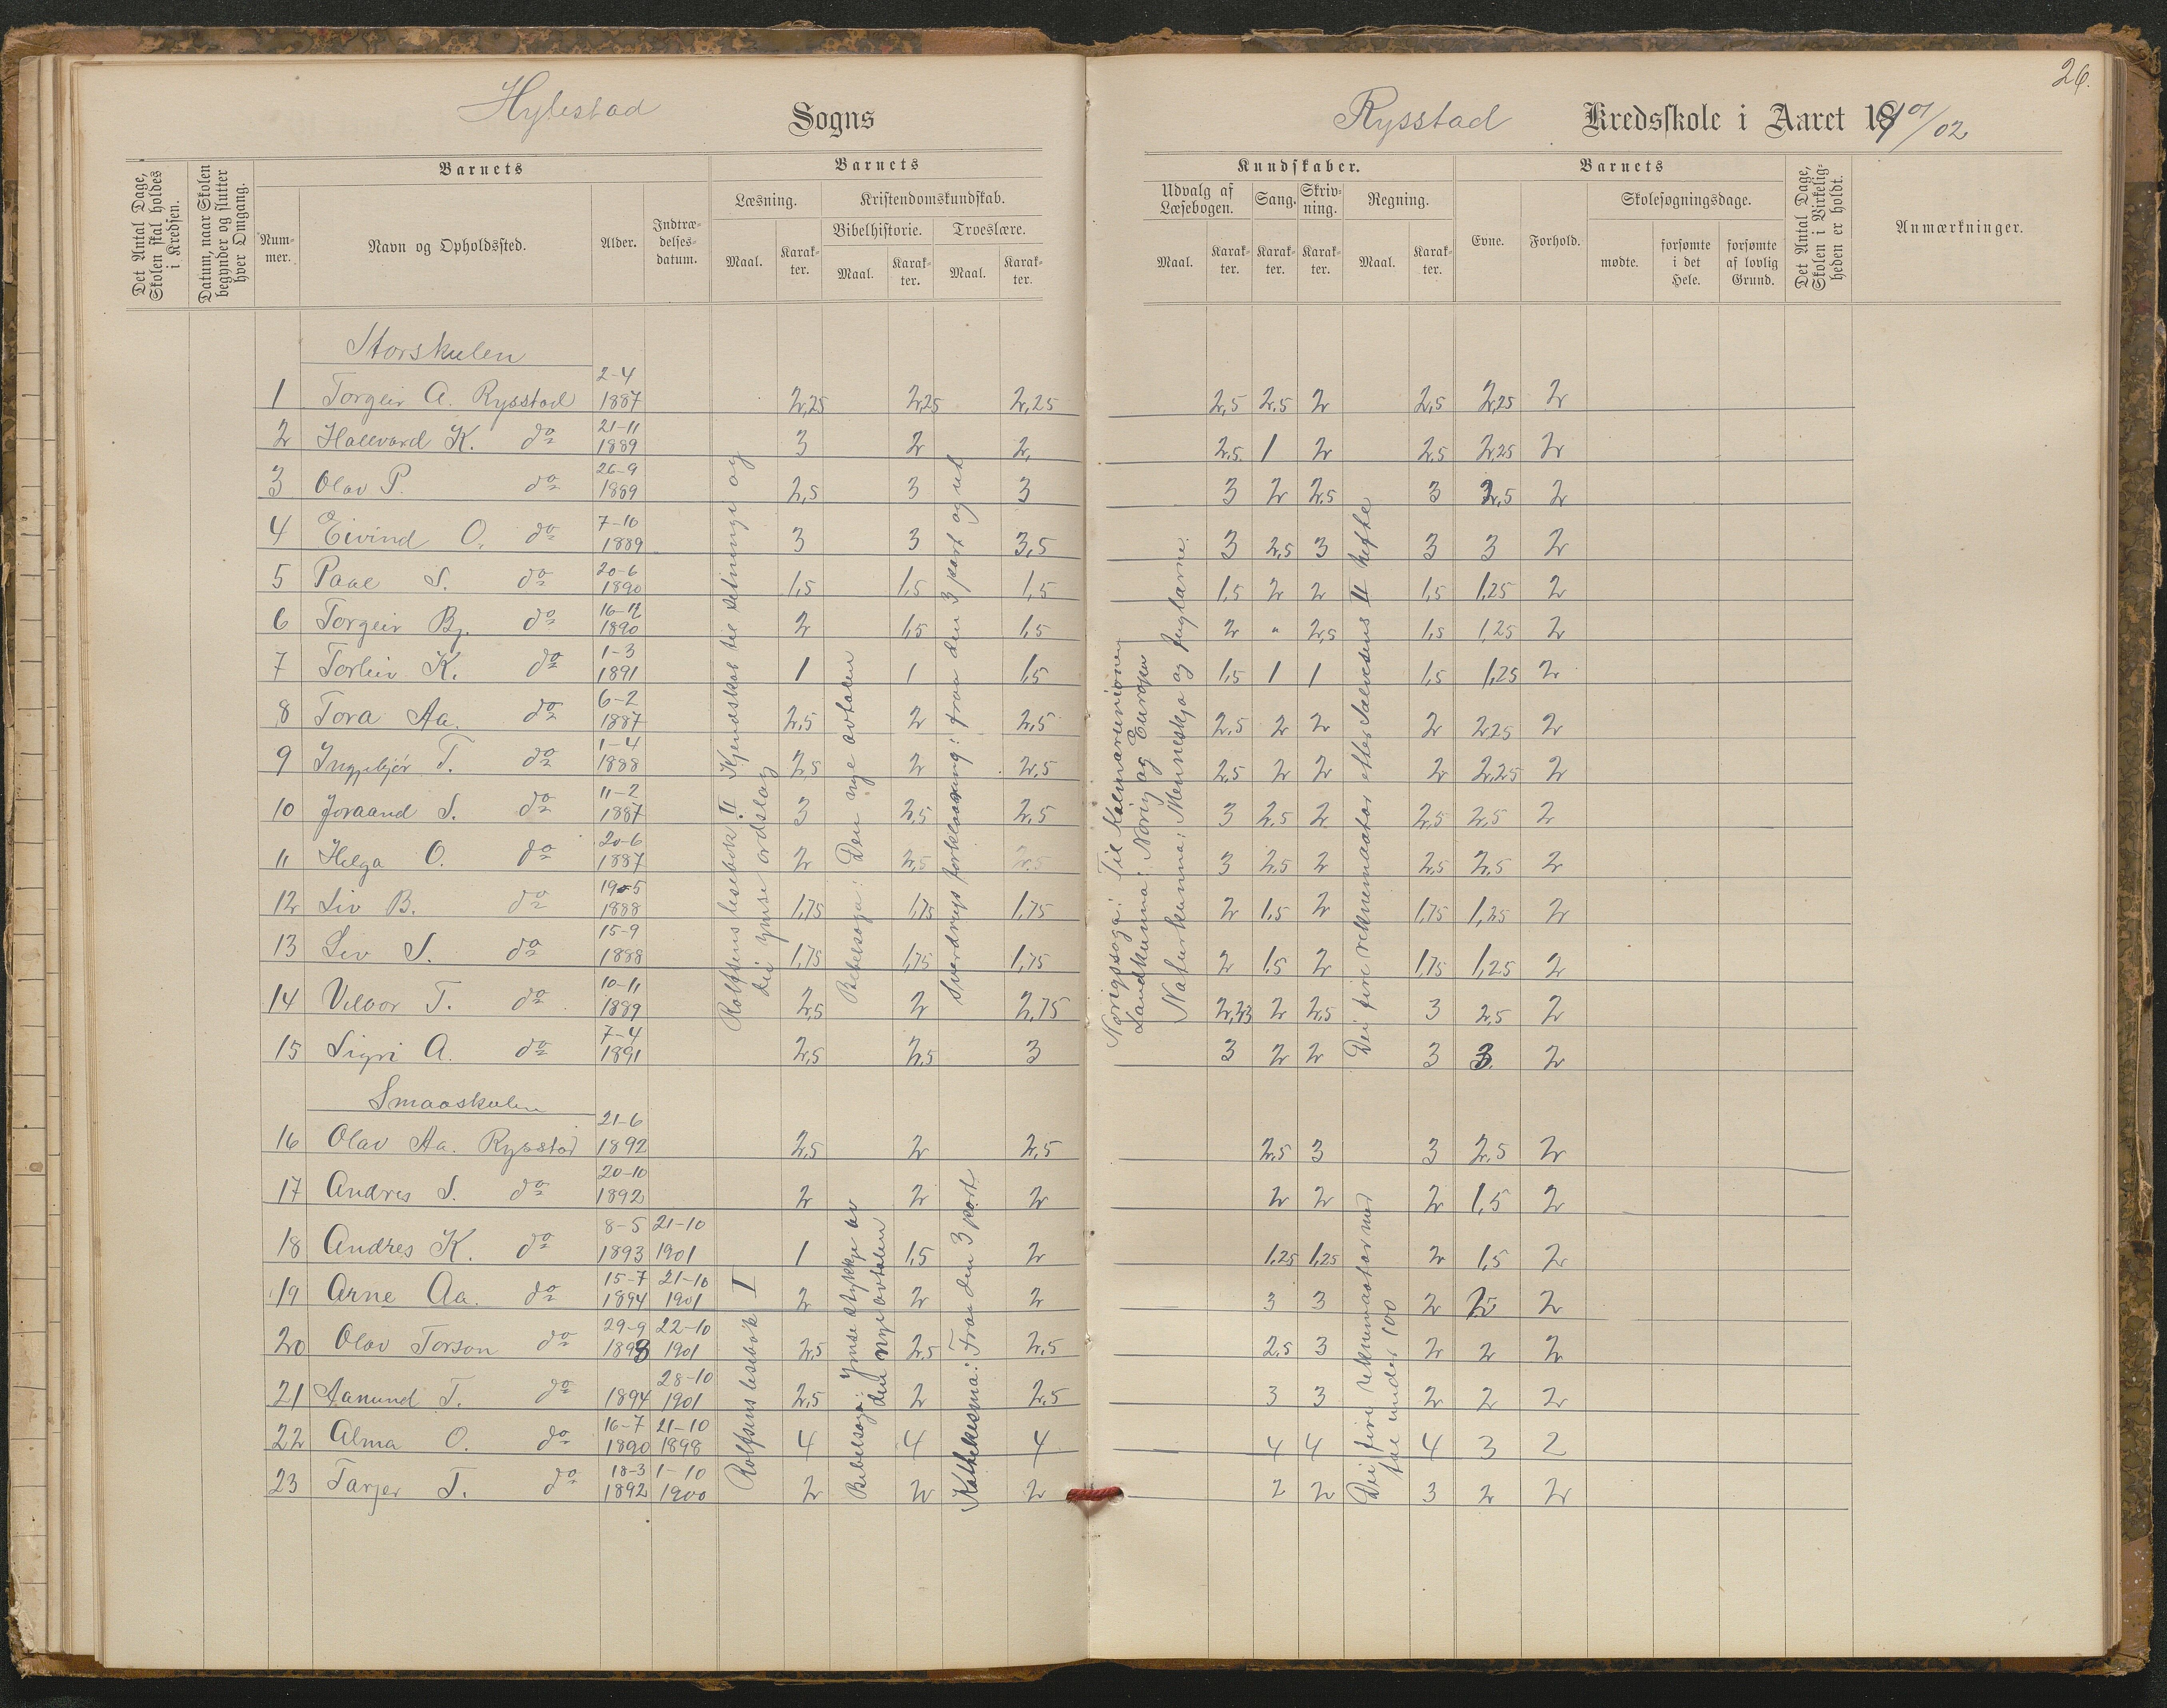 26.
Hylestad Sogns
Rysstad Kredsskole i Aaret 1901/02
Det Antal Dage, Skolen skal holdes i Kredsen.
Datum, naar Skolen begynder og slutter hver Omgang.
Barnets
Nummer.
Navn og Opholdssted.
Alder.
Indtrædelsesdatum.
Barnets
Læsning.
Maal.
Karakter.
Kristendomskundskab.
Bibelhistorie.
Maal.
Karakter.
Troeslære.
Maal.
Karakter.
Kundskaber.
Udvalg af Læsebogen.
Maal.
Karakter.
Sang.
Karakter.
Skrivning.
Karakter.
Regning.
Maal.
Karakter.
Barnets
Evne.
Forhold.
Skolesøgningsdage.
mødte.
forsømte i det Hele.
forsømte af lovlig Grund.
Det Antal Dage, Skolen i Virkeligheden er holdt.
Anmærkninger.
Storskulen
1 Torgeir A. Rysstad 2-4 1887 2,25 2,25 2,25 2,5 2,5 2 2,5 2,25 2
2 Hallvard K. do 21-11 1889 3 2 2, 2,5 1 2 2,5 2,25 2
3 Olav P. do 26-9 1889 2,5 3 3 3 2 2,5 3 2,5 2
4 Eivind O. do 7-10 1889 3 3 3,5 3 2,5 3 3 3 2
5 Paal S. do 20-6 1890 1,5 1,5 1,5 1,5 2 2 1,5 1,25 2
6 Torgeir Bj. do 16-12 1890 2 1,5 1,5 2 " 2,5 1,5 1,25 2
7 Torleiv K. do 1-3 1891 1 1 1,5 1,5 1 1 1,5 1,25 2
8 Tora Aa. do 6-2 1887 2,5 2 2,5 2,5 2 2 2 2,25 2
9 Ingebjør T. do 1-4 1888 2,5 2 2,5 2,5 2 2 2 2,25 2
10 Joraand S. do 11-2 1887 3 2,5 2,5 3 2,5 2 2,5 2,5 2
11 Helga O. do 20-6 1887 2 2,5 2,5 3 2,5 2 2,5 2,5 2
12 Liv B. do 19-5 1888 1,75 1,75 1,75 2 1,5 2 1,75 1,25 2
13 Liv S. do 15-9 1888 1,75 1,75 1,75 2 1,5 2 1,75 1,25 2
14 Vilvor T. do 10-11 1889 2,5 2 2,75 2,33 2 2,5 3 2,5 2
15 Sigri A. do 7-4 1891 2,5 2,5 3 3 2 2 3 3. 2
Rolfsens lesebok II Kjendskab til setninge og
dei ymse ordslag
Bibelsoga: Den nye avtalen
Sverdrups forklaaring: fraa den 3 part og ut
Norigssoga: Til Kalmarunionen
Landkunna: Norig og Europa
Naturkunna: Menneskja og fuglarne.
Dei fire reknemaatar etter Salvesens II hefte
Smaaskulen
16 Olav Aa. Rysstad 21-6 1892 2,5 2 2,5 2,5 3 3 2,5 2
17 Andres S. do 20-10 1892 2 2 2 2 2 2 1,5 2
18 Andres K. do 8-5 1893 21-10 1901 1 1,5 2 1,25 1,25 2 1,5 2
19 Arne Aa. do 15-7 1894 21-10 1901 2 2 2 3 3 2 2 2
20 Olav Torson do 29-9 1893 22-10 1901 2,5 2,5 2,5 2,5 3 2 2 2
21 Aanund T. do 1894 28-10 1901 2,5 2 2,5 3 3 2 2 2
22 Alma O. do 16-7 1890 21-10 1898 4 4 4 4 4 4 3 2
23 Tarjer T. do 18-3 1892 1-10 1900 2 2 2 2 2 3 2 2
Rolfsens lesebok I
Bibelsoga: Ymse stykkje av
den nye avtalen
Kathekesma: Fraa den 3 part
Dei fire reknemaatar med
tal under 100